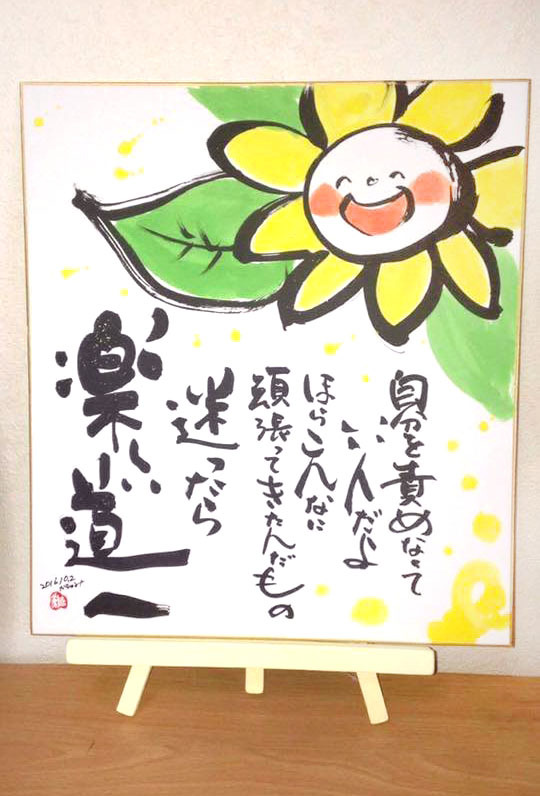 自分を責めなくて
いいんだよ
ほらこんなに
頑張ってきたんだもの
迷ったら
楽しい道へ
2016.10.2